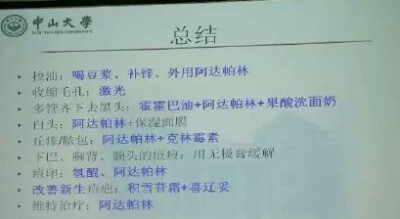 中山大學
总结
• 控油：喝豆浆、补锌、外用阿达帕林
• 收缩毛孔：激光
• 多管齐下去黑头：霍霍巴油+阿达帕林+果酸洗面奶
• 白头：阿达帕林+保湿面膜
• 丘疹/脓包：阿达帕林+克林霉素
• 下巴、胸背、额头的痘痘：用无极膏缓解
• 痘印：氢醌、阿达帕林
• 改善新生痘疤：积雪苷霜+喜辽妥
• 维持治疗：阿达帕林